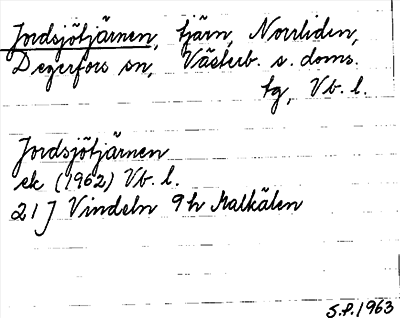 Jordsjötjärnen, tjärn, Norrliden,
Degerfors sn, Västerb. s. doms.
tg, Vb. l.
Jordsjötjärnen
ek (1962) Vb. l.
21 J Vindeln 9 h Malkälen
S.P. 1963